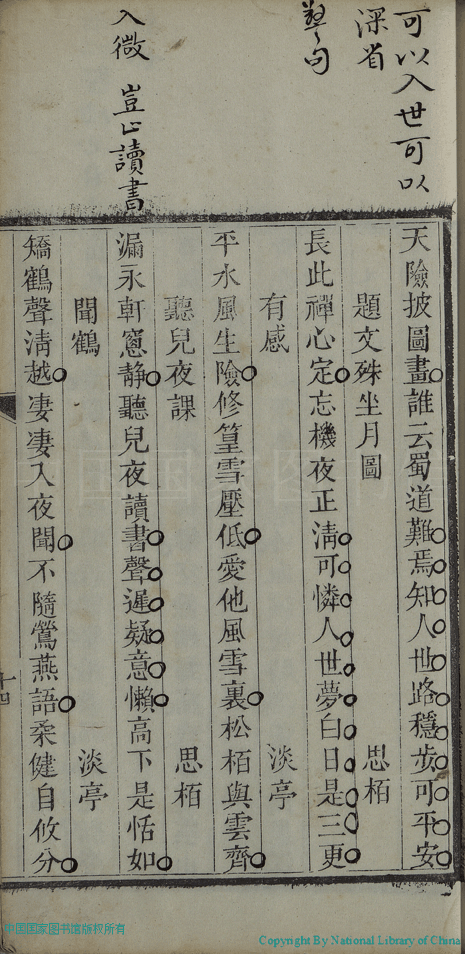 可以入世可以
深省
警句
入微 豈止讀書
天險披圖畫誰云蜀道難焉知人世路穩步可平安
題文殊坐月圖 思栢
長此禪心定忘機夜正淸可憐人世夢白日是三更
有感 淡亭
平水風生險修篁雪壓低愛他風雪裏松栢與雲齊
聽兒夜課 思栢
漏永軒窻靜聽兒夜讀書聲遲疑意懶高下是恬如
聞鶴 淡亭
矯鶴聲淸越凄凄入夜聞不隨鶯燕語柔健自攸分
十四
中国国家图书馆版权所有
Copyright By National Library of China